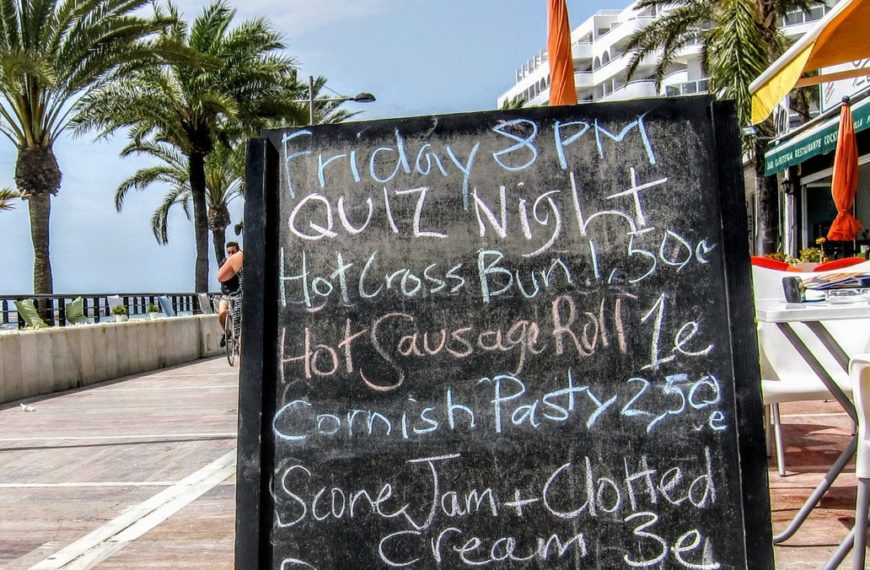 Friday 8PM
QUIZ Night
Hot Cross Bun 1.50e
Hot Sausage Roll 1e
Cornish Pasty 2,50e
Scone Jam + Clotted
Cream 3e
RESTAURANTE